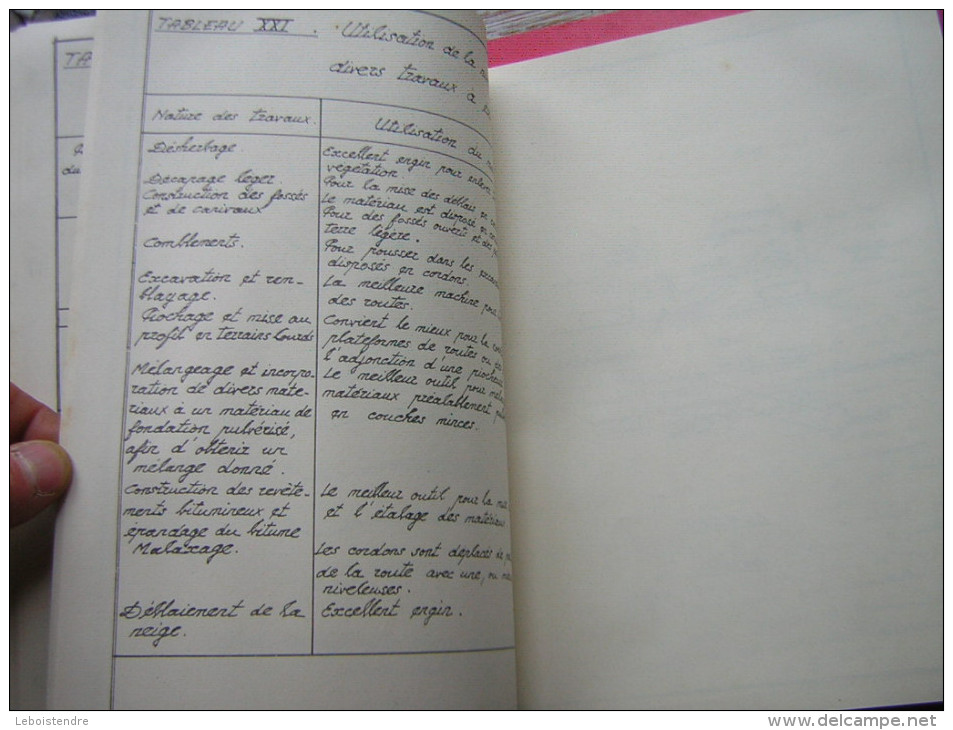 TABLEAU XXI. Utilisation de la
divers travaux à
Nature des travaux.
Utilisation du
Désherbage.
Excellent engin pour enlever
vegetation.
Décapage léger.
Pour la mise des déblais en
Construction des fossés
et de canivaux
Le matériau est disposé en
Pour des fossés ouverts et des
terre légère.
Comblements.
Pour pousser dans les
disposés en cordons.
Excavation et rem-
blayage.
La meilleure machine pour
des routes.
Piochage et mise au
profil en terrains lourds
Convient le mieux pour la
plateformes de routes ou
l'adjonction d'une
Mélangeage et incorpo-
ration de divers maté-
riaux à un matériau de
fondation pulvérisé,
afin d'obtenir un
mélange donné.
Le meilleur outil pour
matériaux préalablement
en couches minces.
Construction des revête-
ments bitumineux et
épandage du bitume
Le meilleur outil pour la
et l'étalage des matériaux
Malaxage.
Les cordons sont déplacés de
de la route avec une, ou
niveleuses.
Déblaiement de la
neige.
Excellent engin.
TA
du
Leboistendre
www.delcampe.net